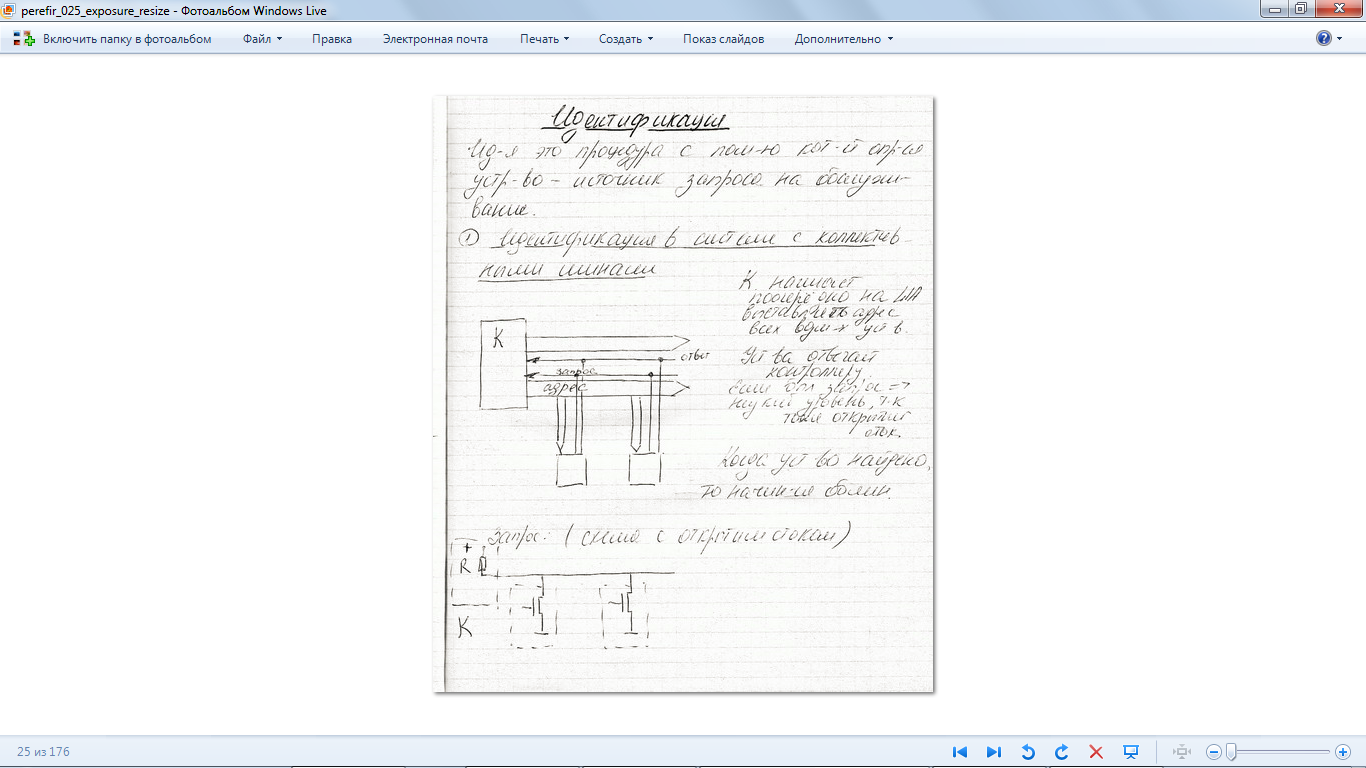 perefir_025_exposure_resize - Фотоальбом Windows Live
Включить папку в фотоальбом Файл Правка Электронная почта Печать Создать Показ слайдов Дополнительно
Идентификация
Ид-я это процедура с пом-ю кот-й опр-ся
устр-во - источник запроса на обслужи-
вание.
① Идентификация в системе с коллектив-
ными шинами
К начинает
поочерёдно на ША
выставлять адрес
всех уст в.
К
ответ
запрос
адрес
Уст ва отвечают
контроллеру.
Если был запрос =>
низкий уровень, т.к
открытый
сток.
Когда уст во найдено,
то начин-ся обмен.
Запрос: (схема с открытым стоком)
+
R
К
25 из 176